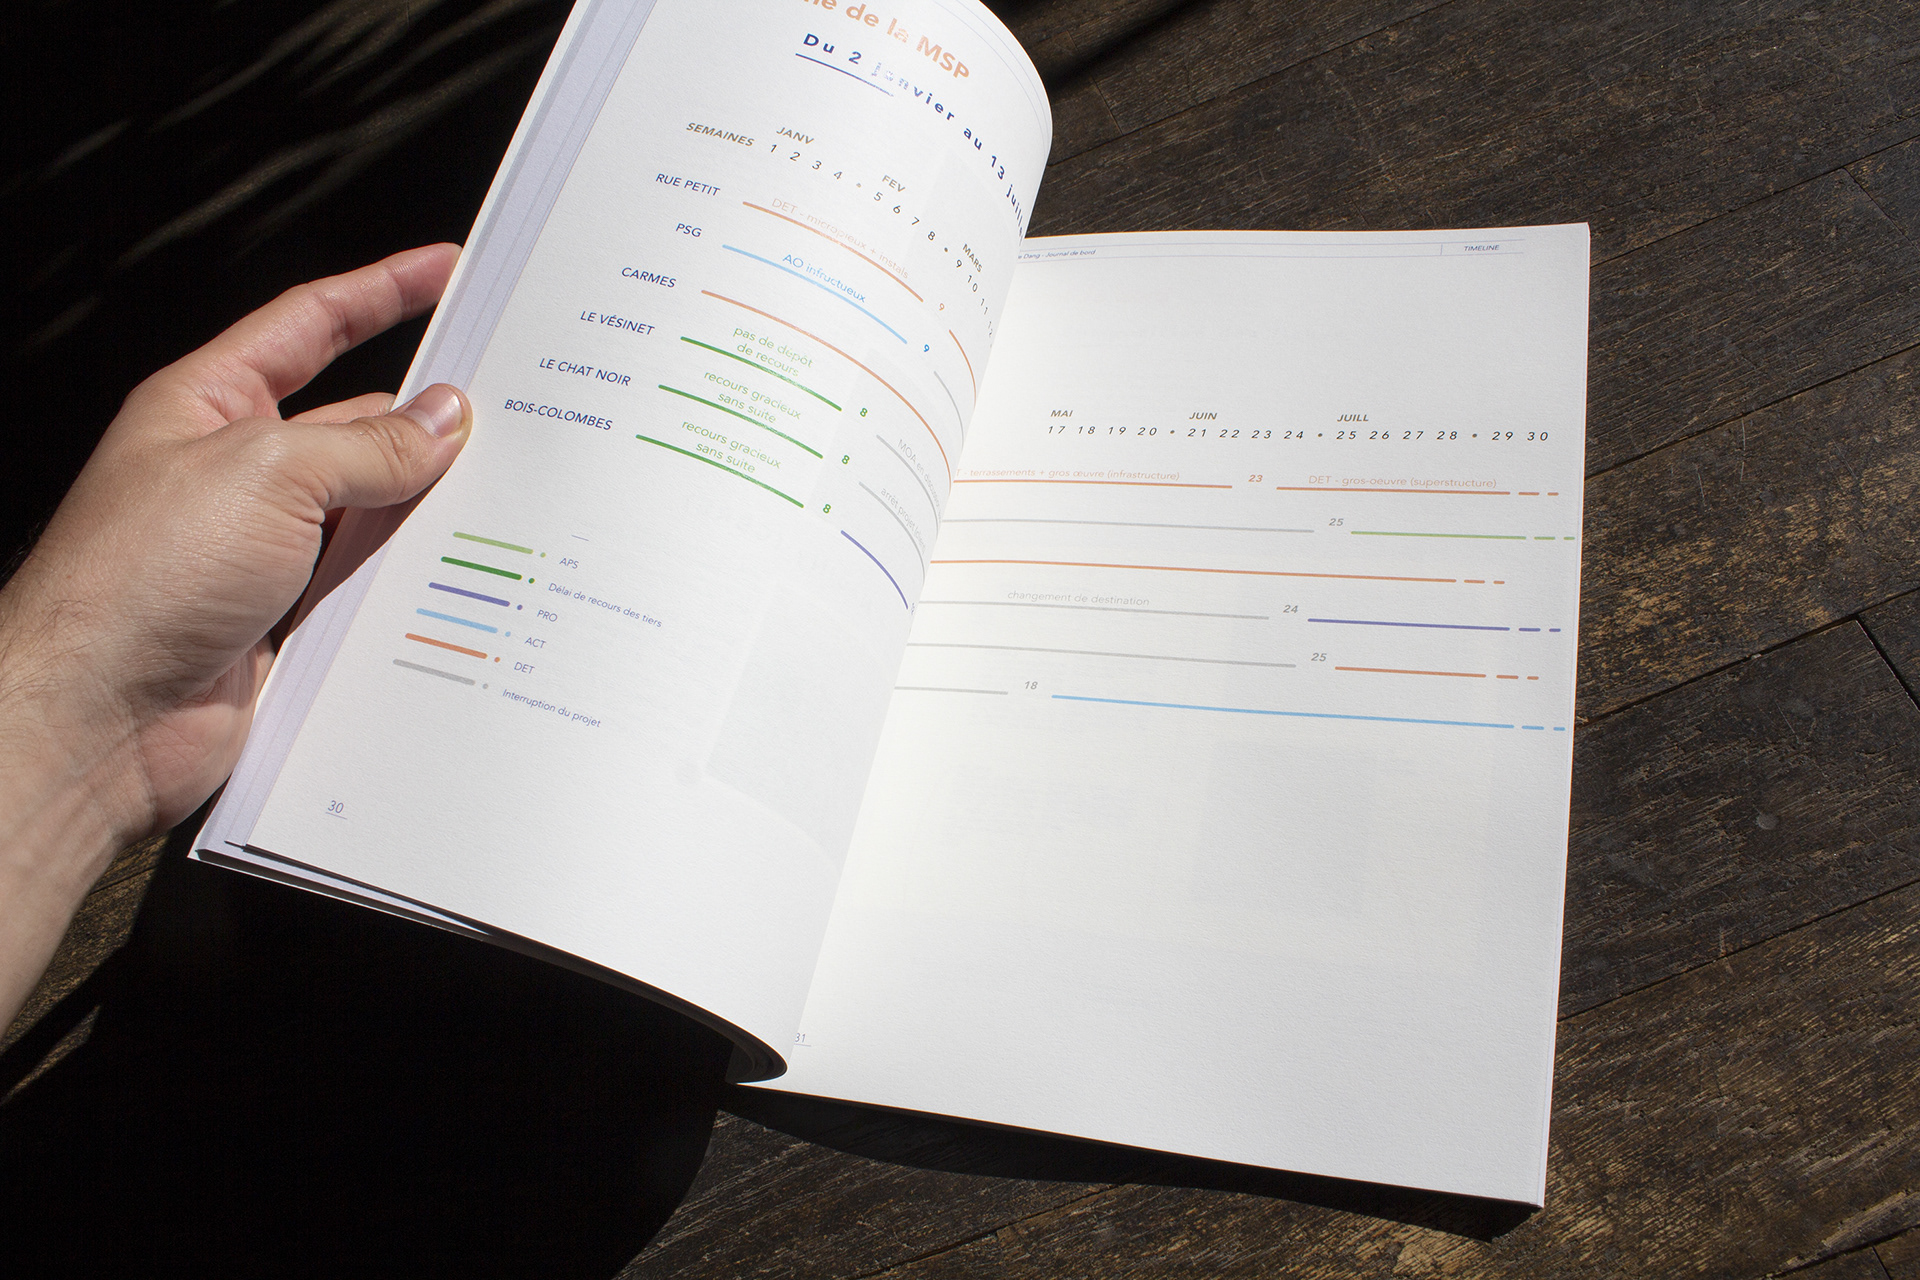 de la MSP
Du 2 janvier au 13
SEMAINES
JANV
1 2 3 4 • 5 6 7 8 • 9 10 11 12
FEV
MARS
RUE PETIT
DET - micropieux + instals
9
PSG
AO infructueux
9
CARMES
LE VÉSINET
pas de dépôt
de recours
8
LE CHAT NOIR
recours gracieux
sans suite
8
MOA en
BOIS-COLOMBES
recours gracieux
sans suite
8
arrêt projet
APS
Délai de recours des tiers
PRO
ACT
DET
Interruption du projet
30
Dang - Journal de bord
TIMELINE
MAI
JUIN
JUILL
17 18 19 20 • 21 22 23 24 • 25 26 27 28 • 29 30
- terrassements + gros œuvre (infrastructure)
23
DET - gros-oeuvre (superstructure)
25
changement de destination
24
25
18
31